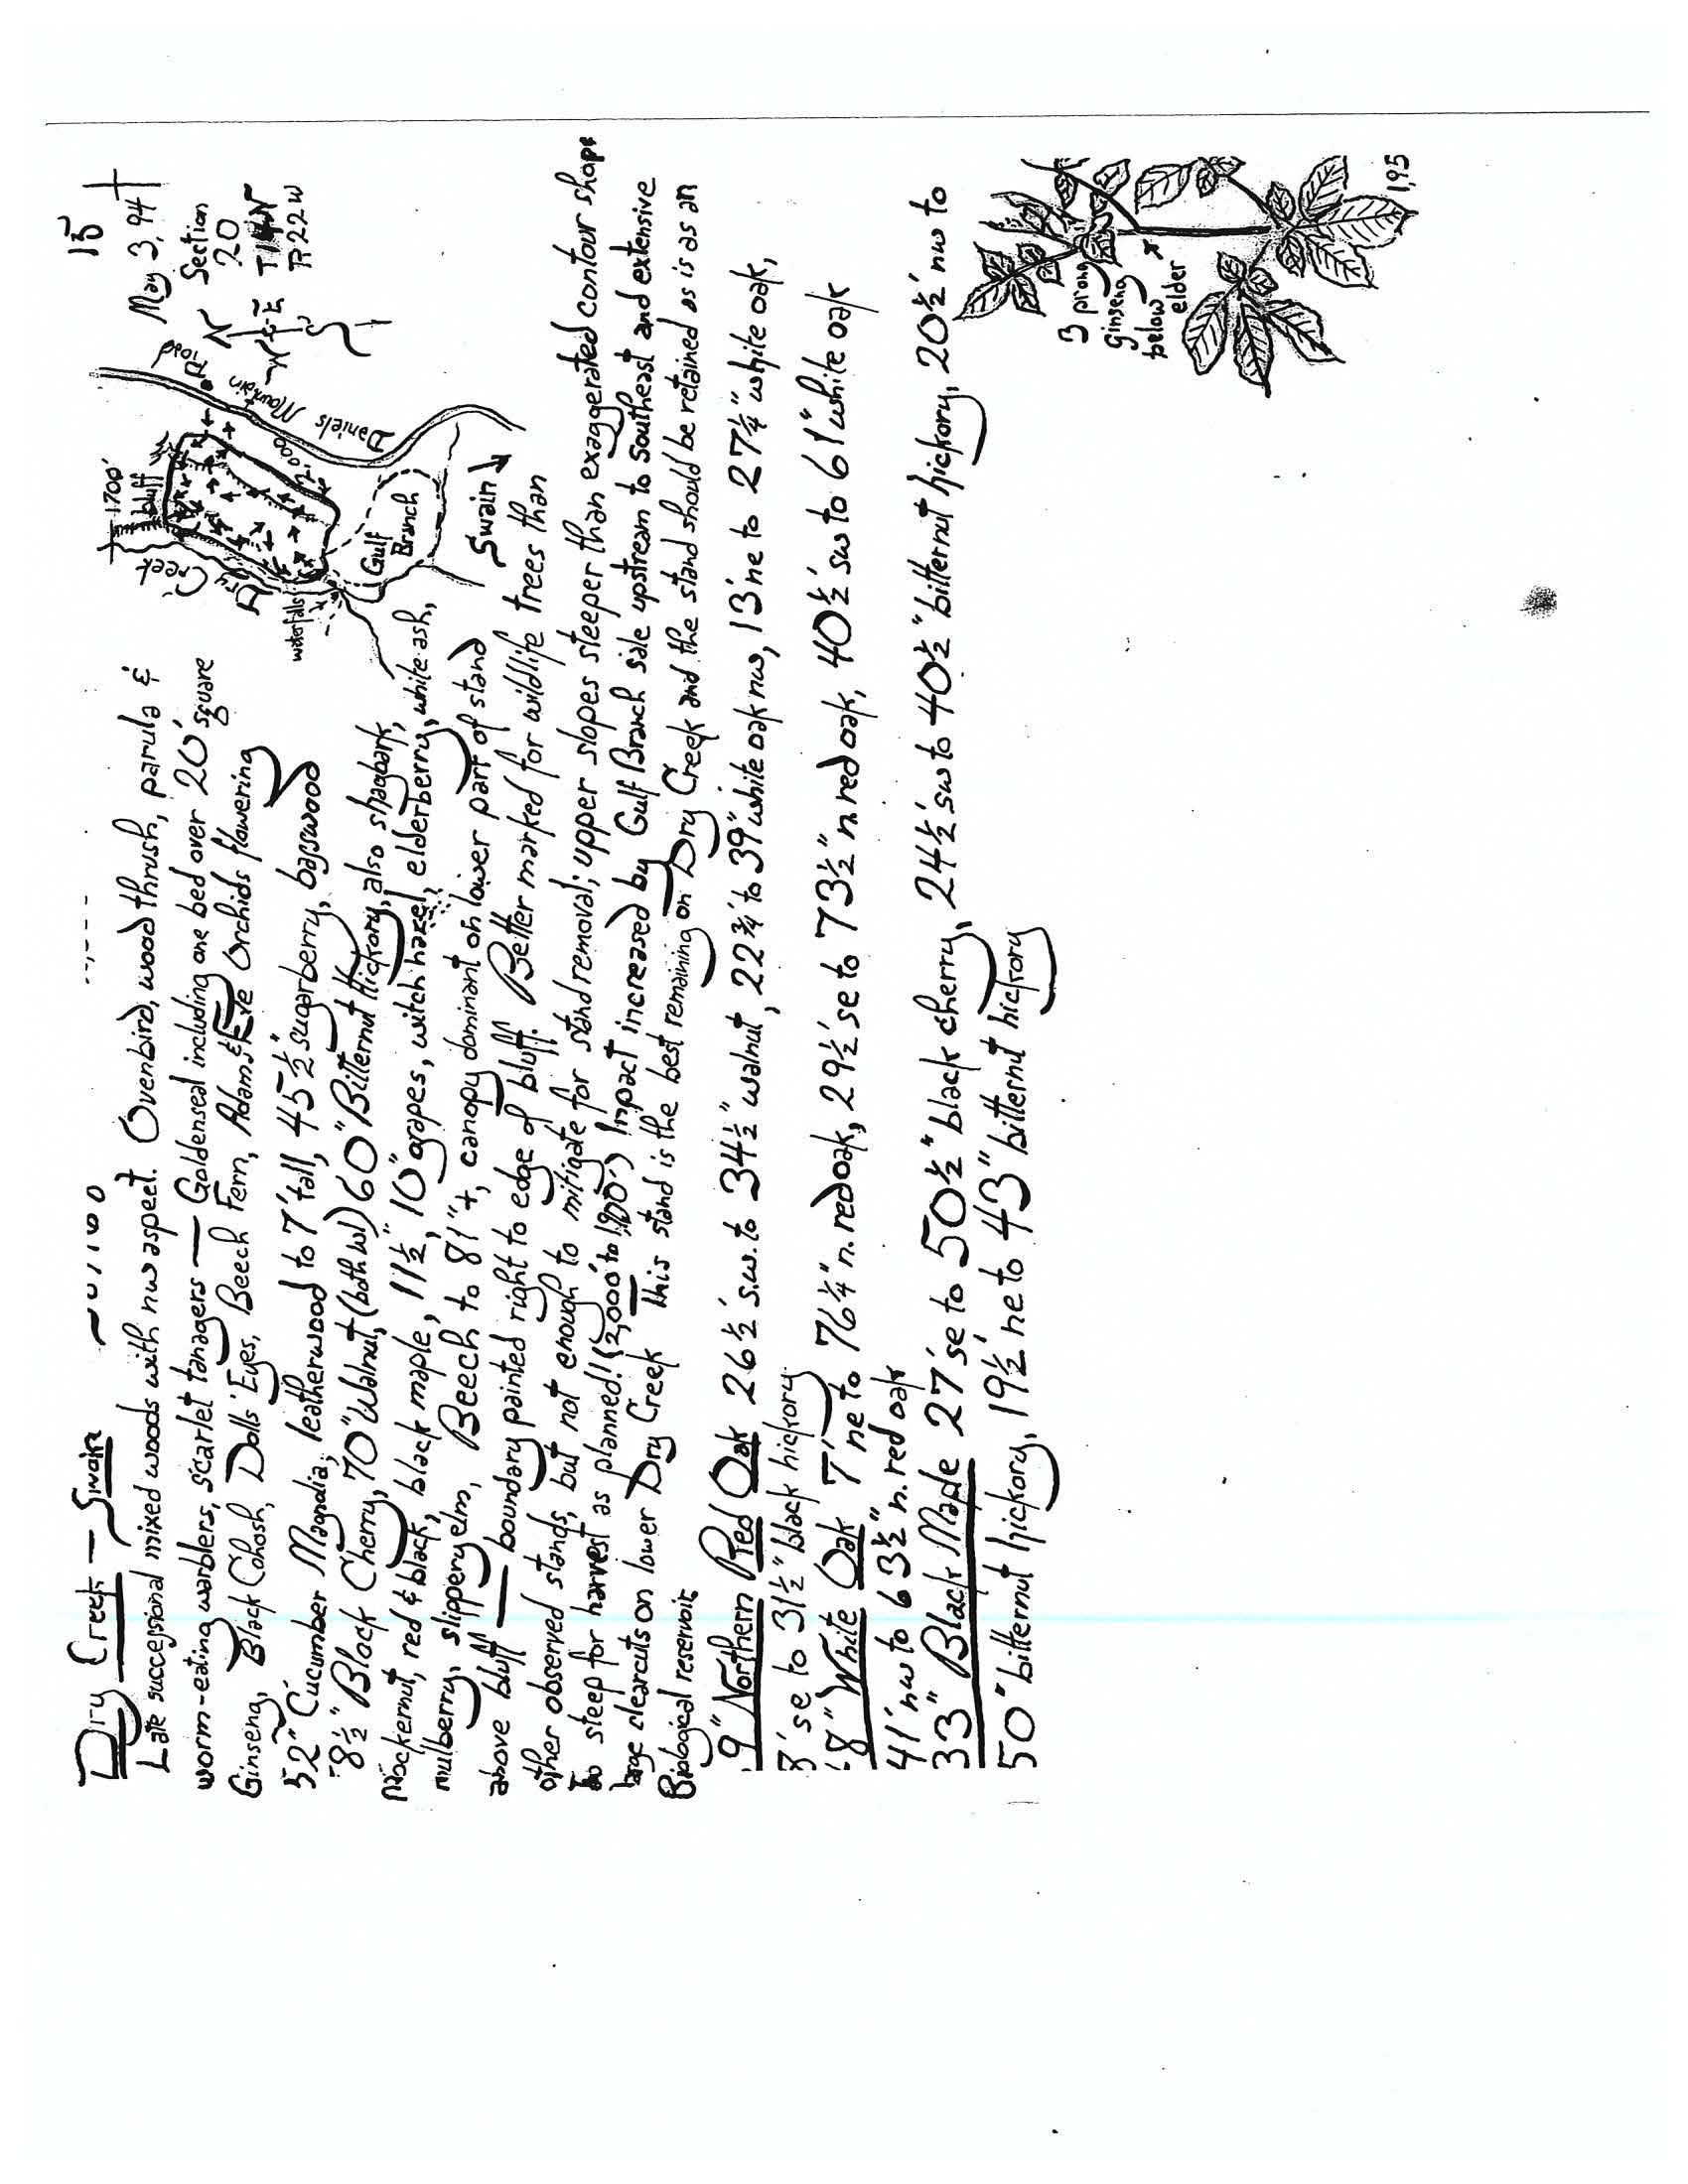 15
Dry Creek — Swain
May 3, 94
Section
20
T14N
R22W
N
W E
S
1700'
bluff
Dry Creek
Daniels Mountain Road
waterfalls
Gulf
Branch
Swain
Late successional mixed woods with nw aspect. Ovenbird, wood thrush, parula &
worm-eating warblers, Scarlet tanagers — Goldenseal including one bed over 20' square
Ginseng, Black Cohosh, Dolls' Eyes, Beech Fern, Adam & Eve Orchids flowering
52" Cucumber Magnolia, leatherwood to 7' tall, 45½" sugarberry, basswood
8½" Black Cherry, 70" Walnut, (both w) 60" Bitternut Hickory, also shagbark,
Mockernut, red & black, black maple, 11½", 10" grapes, witch hazel, elderberry, white ash,
mulberry, slippery elm, Beech to 81"+, canopy dominant on lower part of stand
above bluff — boundary painted right to edge of bluff. Better marked for wildlife trees than
other observed stands, but not enough to mitigate for stand removal; upper slopes steeper than exaggerated contour shape
too steep for harvest as planned! (2,000' to 1,900') Impact increased by Gulf Branch sale upstream to Southeast and extensive
large clearcuts on lower Dry Creek This stand is the best remaining on Dry Creek and the stand should be retained as is as an
Biological reservoir
9" Northern Red Oak 26½' s.w. to 34½" walnut, 22¾' to 39" white oak nw, 13' ne to 27¼" white oak,
8' se to 31½" black hickory
8" White Oak 7' ne to 76¼" n. red oak, 29½' se to 73½" n. red oak, 40½' sw to 61" white oak
41' nw to 63½" n. red oak
33" Black Maple 27' se to 50½" black cherry, 24½' sw to 40½" bitternut hickory, 20½' nw to
50" bitternut hickory, 19½' ne to 43" bitternut hickory
3 prong
Ginseng
below
elder
195